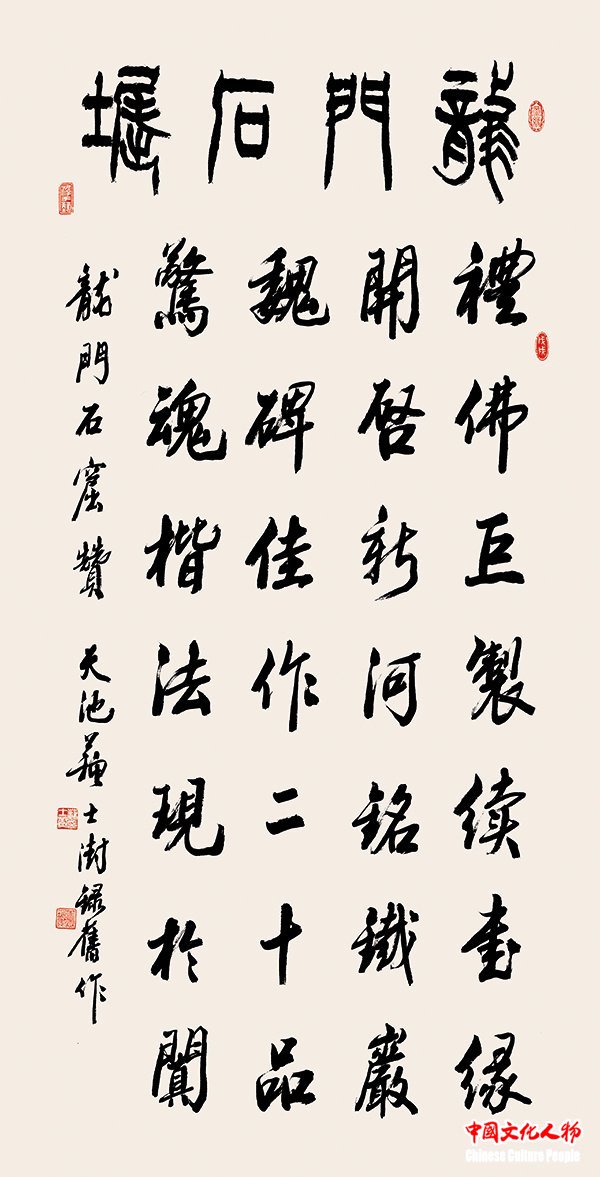 龍門石堀
禮佛巨製續書緣
開啓新河銘鐵巖
魏碑佳作二十品
驚魂楷法現於闐
龍門石窟贊 天池蘇士澍録舊作
戊戌
中國文化人物
Chinese Culture People